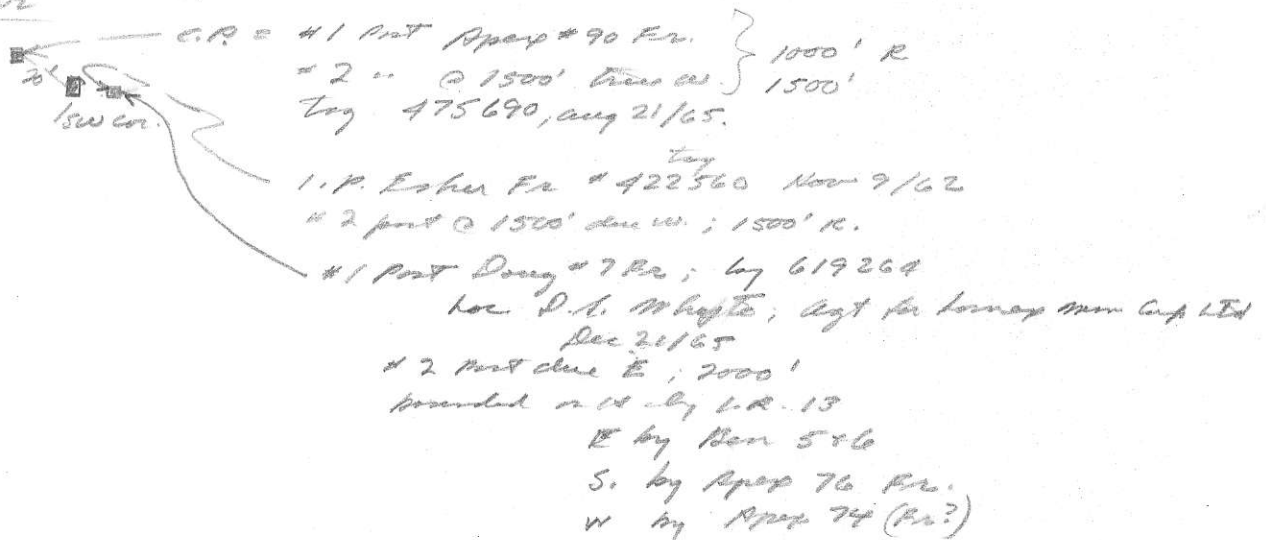 C.P. = #1 Post Apex #90 Fr. } 1000' R
#2 " @ 1500' true W. } 1500'
tag 475690, Aug 21/65.
20'
SW cor.
tag
I.P. Esker Fr # 422560 Nov 9/62
#2 post @ 1500' due W.; 1500' R.
#1 Post Doug #7 Fr; tag 619264
Loc D. Whyte; Agt for Lornex Mn Corp Ltd
Dec 21/65
#2 Post due E; 2000'
bounded on N by L.R. 13
E by Ben 5+6
S. by Apex 76 Fr.
W by Apex 74 (Fr?)